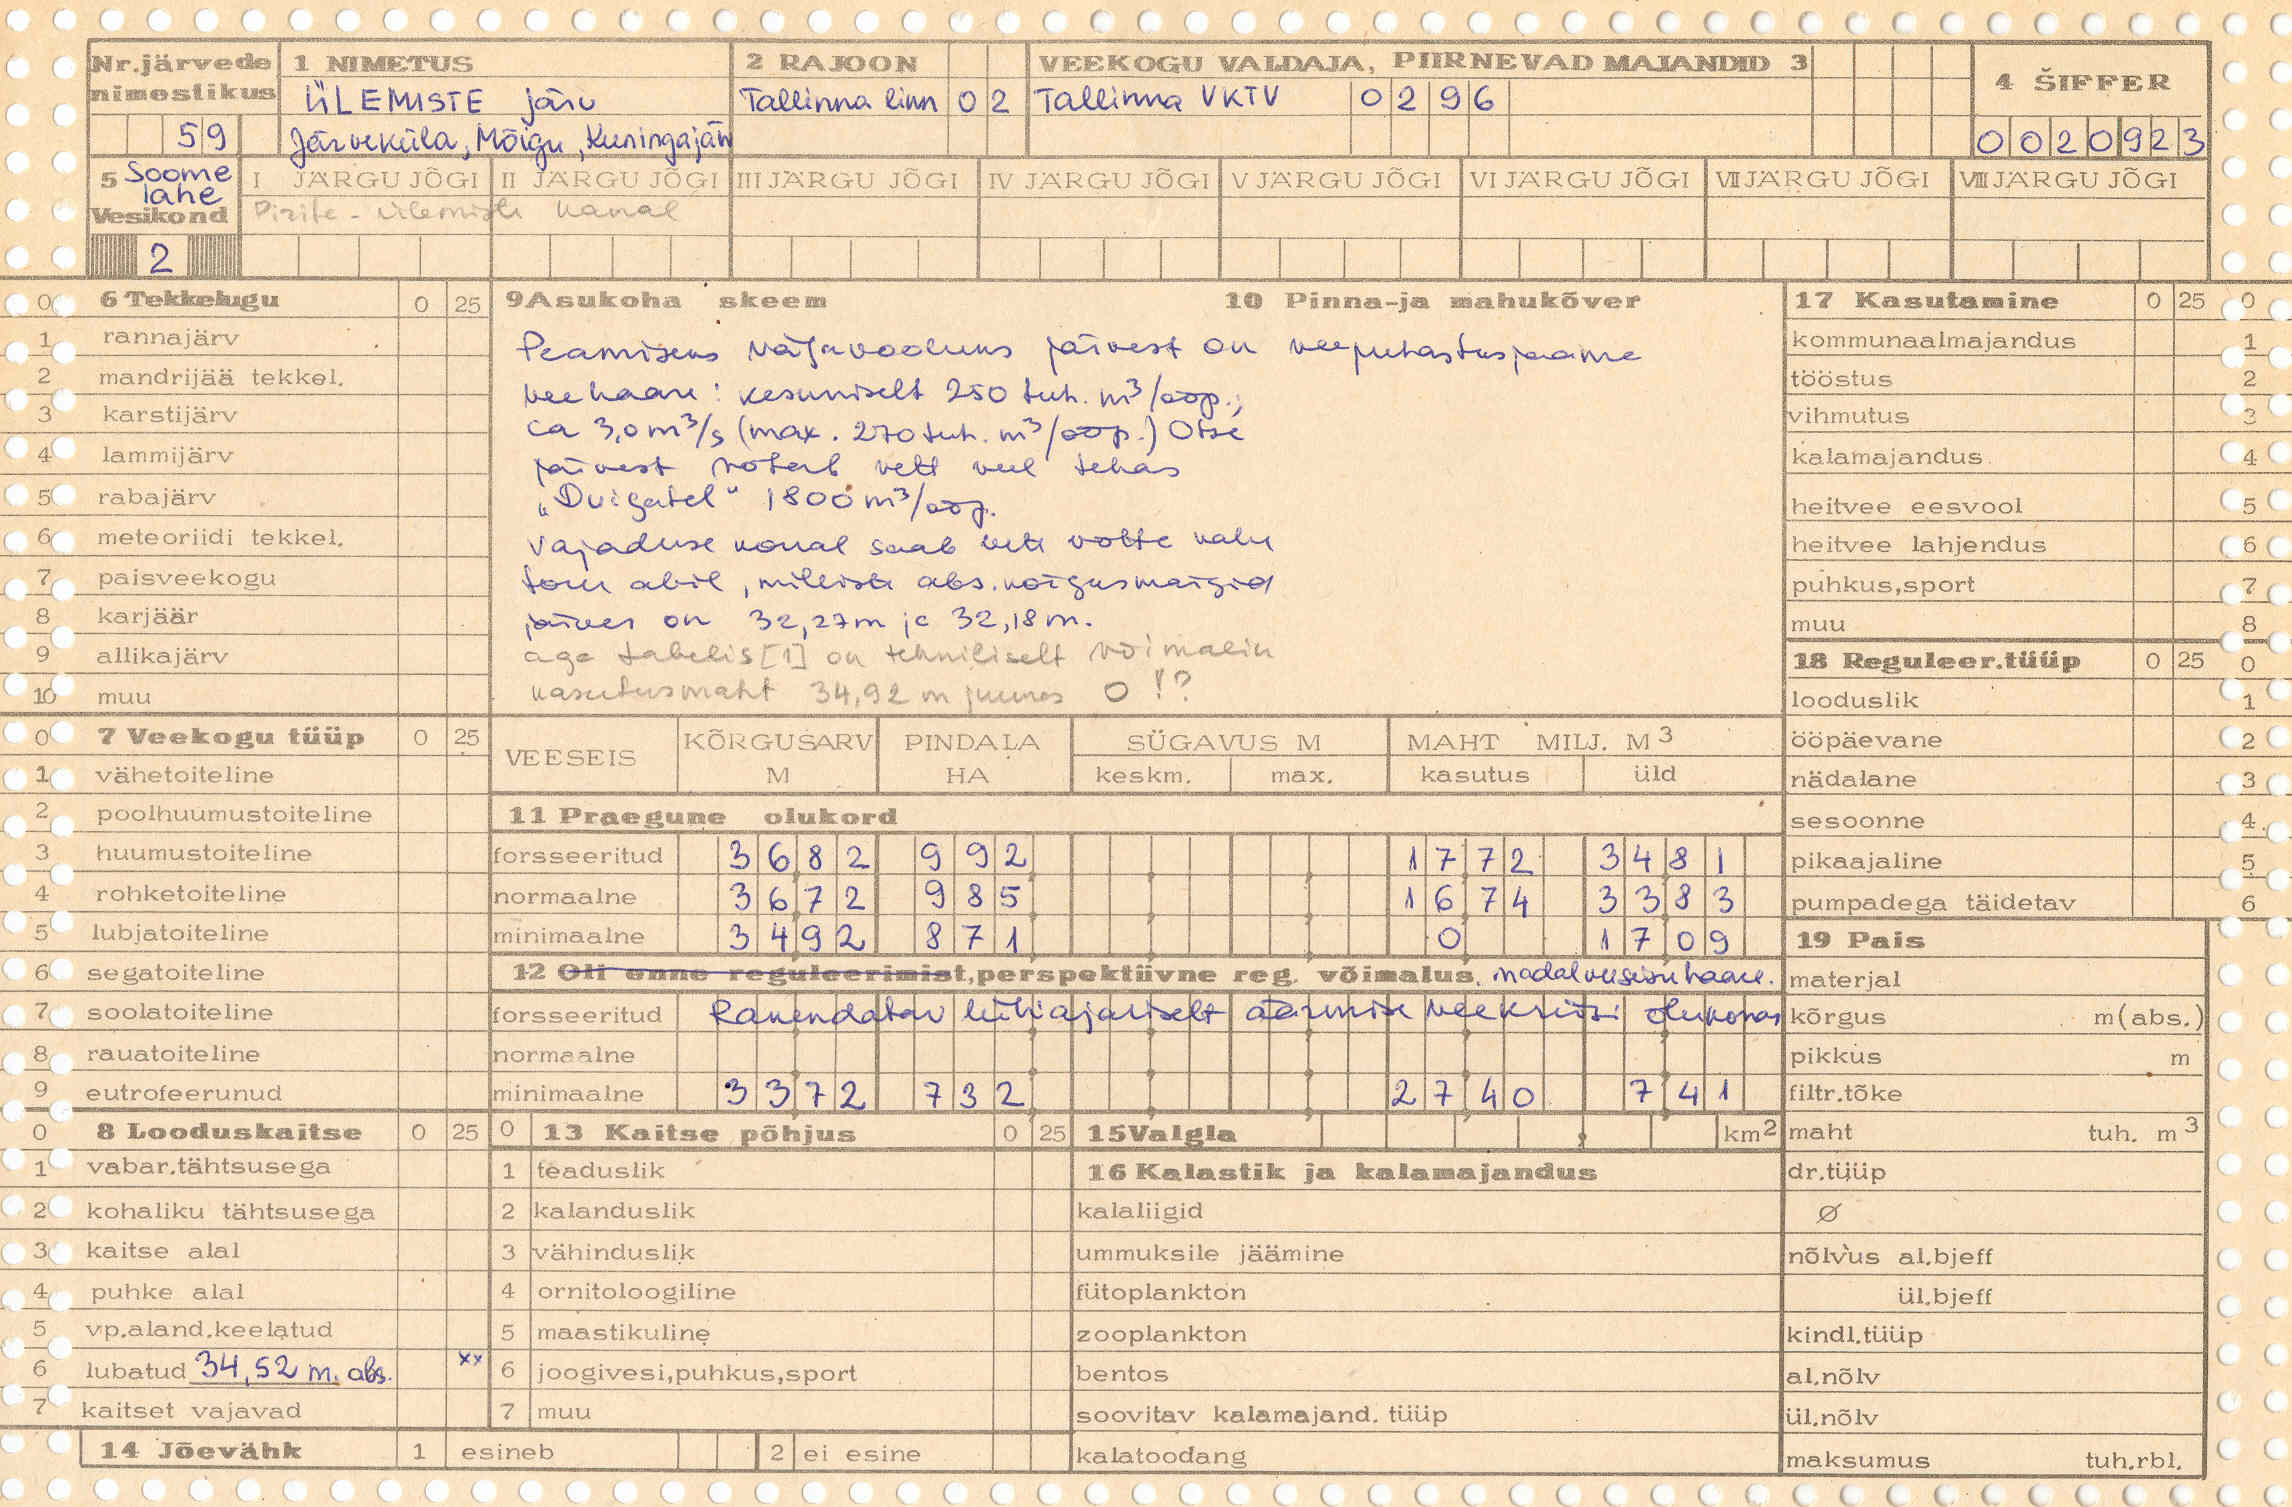 Nr.järvede nimestikus 1 NIMETUS 2 RAJOON VEEKOGU VALDAJA, PIIRNEVAD MAJANDID 3 4 ŠIFFER
ÜLEMISTE järv Tallinna linn 02 Tallinna VKTV 0296
59 Järveküla, Mõigu, Kuningajärv 0020923
5 Soome lahe Vesikond I JÄRGU JÕGI II JÄRGU JÕGI III JÄRGU JÕGI IV JÄRGU JÕGI V JÄRGU JÕGI VI JÄRGU JÕGI VII JÄRGU JÕGI VIII JÄRGU JÕGI
Pirita - Ülemiste kanal
2
0 6 Tekkelugu 0 25
1 rannajärv
2 mandrijää tekkel.
3 karstijärv
4 lammijärv
5 rabajärv
6 meteoriidi tekkel.
7 paisveekogu
8 karjäär
9 allikajärv
10 muu
0 7 Veekogu tüüp 0 25
1 vähetoiteline
2 poolhuumustoiteline
3 huumustoiteline
4 rohketoiteline
5 lubjatoiteline
6 segatoiteline
7 soolatoiteline
8 rauatoiteline
9 eutrofeerunud
0 8 Looduskaitse 0 25
1 vabar.tähtsusega
2 kohaliku tähtsusega
3 kaitse alal
4 puhke alal
5 vp.aland.keelatud
6 lubatud 34,52 m. abs. xx
7 kaitset vajavad
14 Jõevähk 1 esineb 2 ei esine
9 Asukoha skeem 10 Pinna-ja mahukõver
Peamiseks väljavooluks järvest on veepuhastusjaama
veehaare: keskmiselt 250 tuh. m³/ööp.;
ca 3,0 m³/s (max. 270 tuh. m³/ööp.) Otse
järvest võtab vett veel tehas
„Dvigatel" 1800 m³/ööp.
Vajaduse korral saab vett võtta kahe
toru abil, milliste abs. kõrgusmärgid
järves on 32,27m ja 32,18m.
aga tabelis [1] on tehniliselt võimalik
kasutusmaht 34,92 m juures 0 !?
VEESEIS KÕRGUSARV M PINDALA HA SÜGAVUS M keskm. max. MAHT MILJ. M3 kasutus üld
11 Praegune olukord
forsseeritud 3682 992 1772 3481
normaalne 3672 985 1674 3383
minimaalne 3492 871 0 1709
12 Oli enne reguleerimist,perspektiivne reg. võimalus. madalveesisuhaare.
forsseeritud Rakendatav lühiajaliselt äärmise veekriisi olukorras
normaalne
minimaalne 3372 732 2740 741
0 13 Kaitse põhjus 0 25
1 teaduslik
2 kalanduslik
3 vähinduslik
4 ornitoloogiline
5 maastikuline
6 joogivesi,puhkus,sport
7 muu
15 Valgla km2
16 Kalastik ja kalamajandus
kalaliigid
ummuksile jäämine
fütoplankton
zooplankton
bentos
soovitav kalamajand. tüüp
kalatoodang
17 Kasutamine 0 25 0
kommunaalmajandus 1
tööstus 2
vihmutus 3
kalamajandus 4
heitvee eesvool 5
heitvee lahjendus 6
puhkus,sport 7
muu 8
18 Reguleer.tüüp 0 25 0
looduslik 1
ööpäevane 2
nädalane 3
sesoonne 4
pikaajaline 5
pumpadega täidetav 6
19 Pais
materjal
kõrgus m(abs.)
pikkus m
filtr.tõke
maht tuh. m3
dr.tüüp
Ø
nõlvus al.bjeff
ül.bjeff
kindl.tüüp
al.nõlv
ül.nõlv
maksumus tuh.rbl.